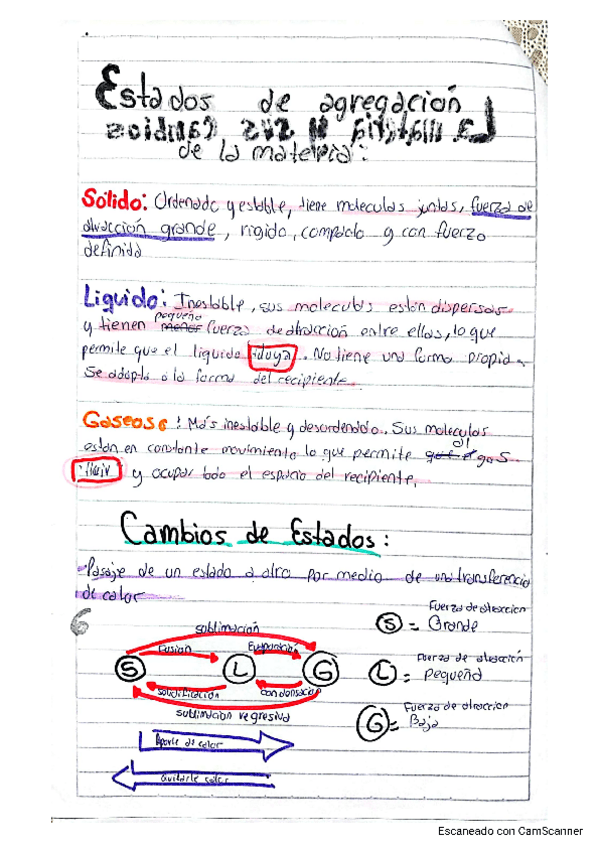 Estados de agregación
La materia y sus cambios
de la materia:
Solido: Ordenado y estable, tiene moleculas juntas, fuerza de
atracción grande, rigido, compacto y con fuerza
definida
Liquido: Inestable, sus moleculas están dispersas
pequeña
y tienen menor fuerza de atracción entre ellas, lo que
permite que el liquido fluya. No tiene una forma propia
se adapta a la forma del recipiente.
Gaseoso: Más inestable y desordenado. Sus moleculas
al
estan en constante movimiento lo que permite que el gas
fluir y ocupar todo el espacio del recipiente.
Cambios de Estados:
Pasaje de un estado a otro por medio de una transferencia
de calor
6
sublimación
Fusion Evaporación
S L G
solidificación condensacion
sublimacion regresiva
Aporte de calor
Quitarle calor
Fuerza de atraccion
S = Grande
Fuerza de atracción
L = Pequeña
Fuerza de atraccion
G = Baja
Escaneado con CamScanner